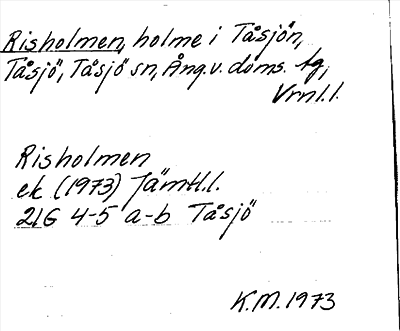 Risholmen, holme i Tåsjön,
Tåsjö, Tåsjö sn, Ång.v. doms. tg,
Vrnl.l.
Risholmen
ek (1973) Jämtl.l.
21G 4-5 a-b Tåsjö
K.M. 1973